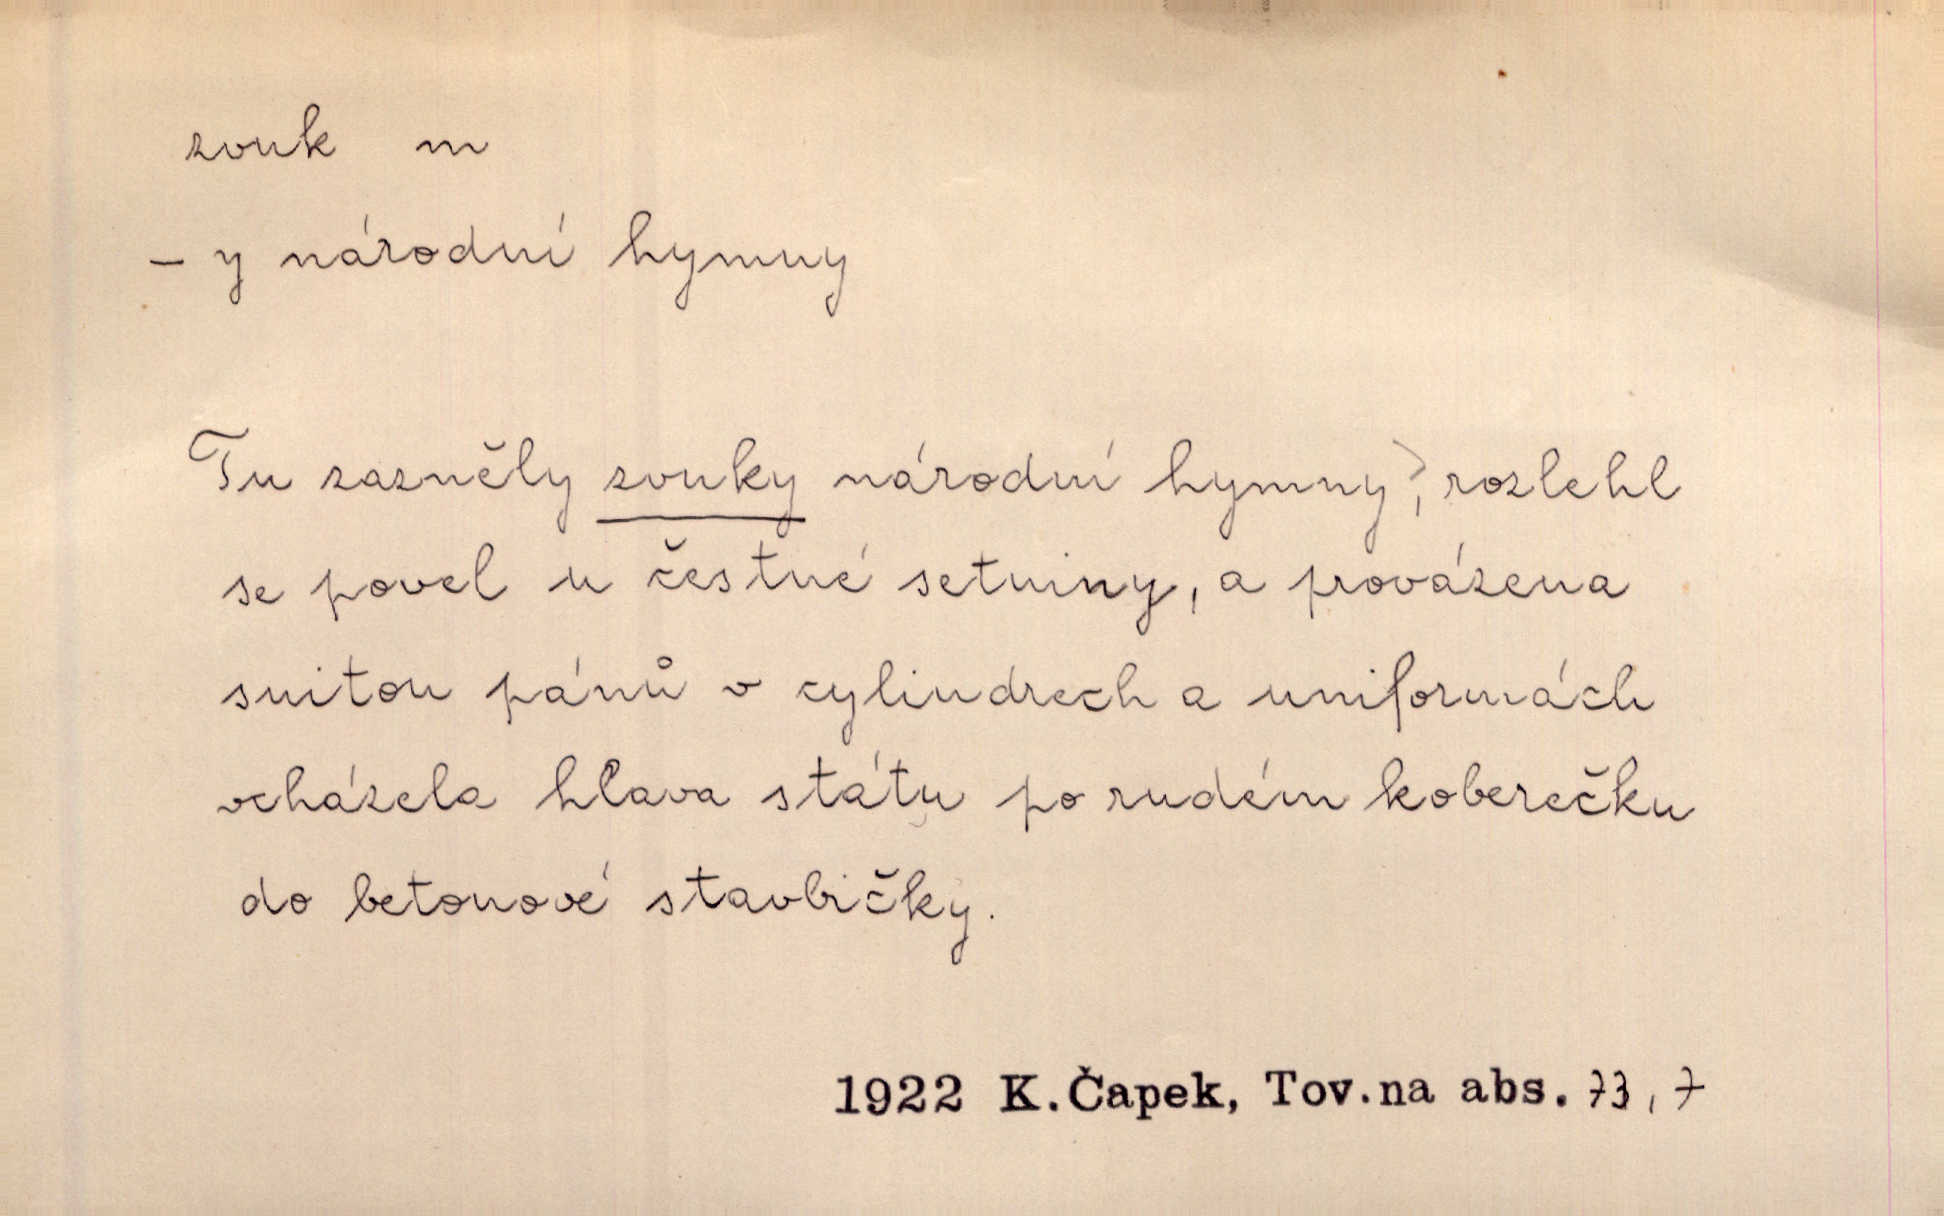 zvuk m
- y národní hymny
Tu zazněly zvuky národní hymny, rozlehl
se povel u čestné setniny, a provázena
suitou pánů v cylindrech a uniformách
vcházela hlava státu po rudém koberečku
do betonové stavbičky.
1922 K.Čapek, Tov.na abs. 73, 7